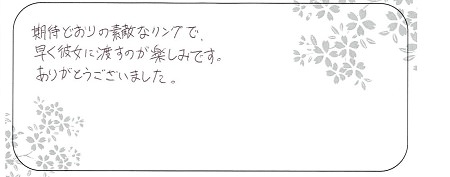 期待どおりの素敵なリングで、
早く彼女に渡すのが楽しみです。
ありがとうございました。